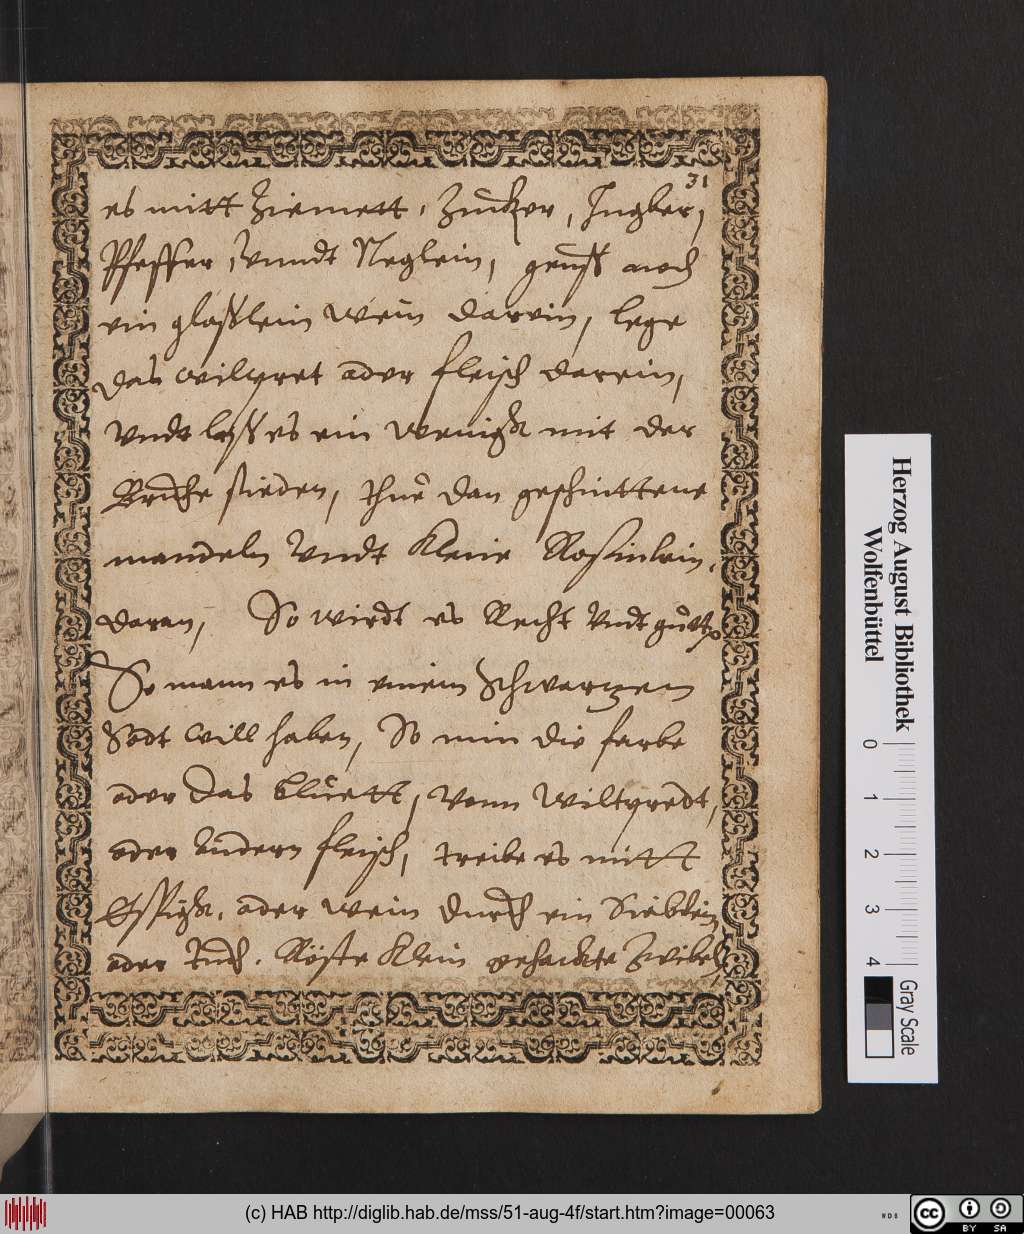 31
es mitt Ziemett, Zucker, Ingber,
Pfeffer, vnndt Neglein, geuß auch
ein gläßlein Wein darein, lege
das wilpret ader fleisch darein,
Vndt laß es ein wenigk mit der
Brüche sieden, thue dan geschnittene
mandeln Vndt kleine Rosinlein,
daran, So wirdt es Recht Vndt gutt,
So mann es in einem Schwartzen
Sodt will haben, So nim die farbe
oder das bluett, vonn Wiltpredt,
oder andern fleisch, treibe es mitt
Essigk, oder wein durch ein Sieblein
oder Tuch. Röste klein gehackte Zwibeln
Herzog August Bibliothek
Wolfenbüttel
0 1 2 3 4
Gray Scale
(c) HAB http://diglib.hab.de/mss/51-aug-4f/start.htm?image=00063
WDB
cc BY SA